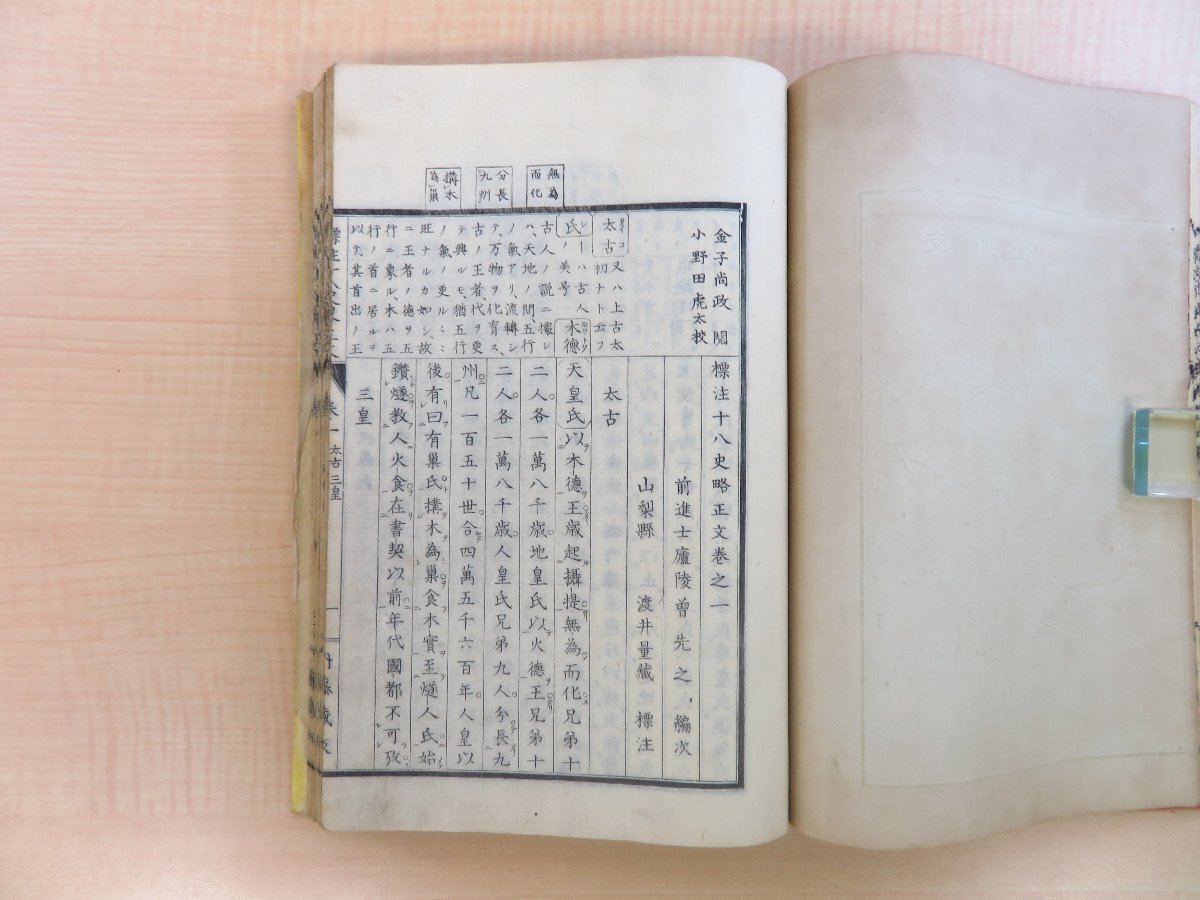 無為
而化
分長
九州
構木
為巢
金子尚政 閲
小野田虎太校
太古又ハ上古太
初ナト云フ
氏レーハ古人
ノ美号 木德
古人ノ説ニ據レ
ハ、天地ノ間、五行
ノ氣アリ、流轉シ
テ、万物ヲ化育ス、
古ノ王者、代ヲ更
テ興ルモ、猶五行
ノ氣ノ更ルミニ
旺ナルカ如シ、故
ニ王者ノ德ヲ五
行ニ象ル、木ハ五
行ノ首ニ居ルヲ
以テ、其首出ノ王
標注十八史略正文卷之一
前進士廬陵曾先之 編次
山梨縣 渡井量藏 標注
太古
天皇氏以木德王歲起攝提無為而化兄弟十
二人各一萬八千歲地皇氏以火德王兄弟十
二人各一萬八千歲人皇氏兄弟九人分長九
州凡一百五十世合四萬五千六百年人皇以
後有曰有巢氏構木為巢食木實至燧人氏始
鑽燧教人火食在書契以前年代國都不可攷
三皇
卷一 太古三皇